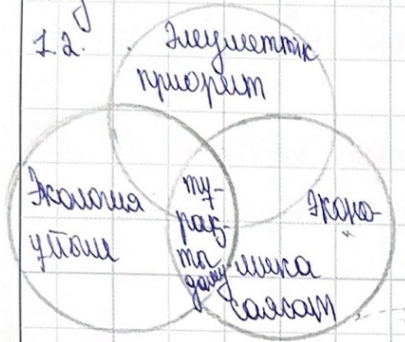 1.2.
Әлеуметтік
приорит
Экология
ұйым
тұ-
рақ-
ты
даму
Эконо-
мика
саясат